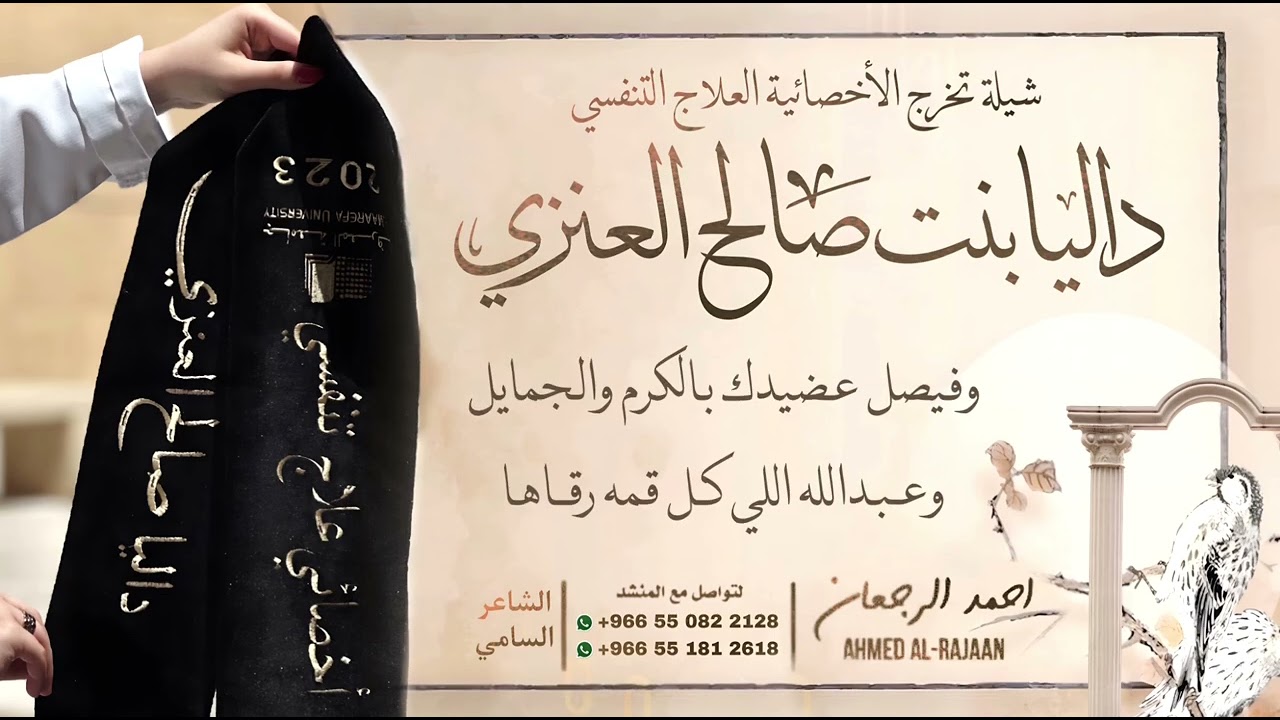 شيلة تخرج الأخصائية العلاج التنفسي
داليا بنت صالح العنزي
وفيصل عضيدك بالكرم والجمايل
وعبدالله اللي كل قمه رقاها
احمد الرجعان
AHMED AL-RAJAAN
لتواصل مع المنشد
+966 55 082 2128
+966 55 181 2618
الشاعر
السامي
2023
MAAREFA UNIVERSITY
جامعة المعرفة
أخصائي علاج تنفسي
داليا صالح العنزي